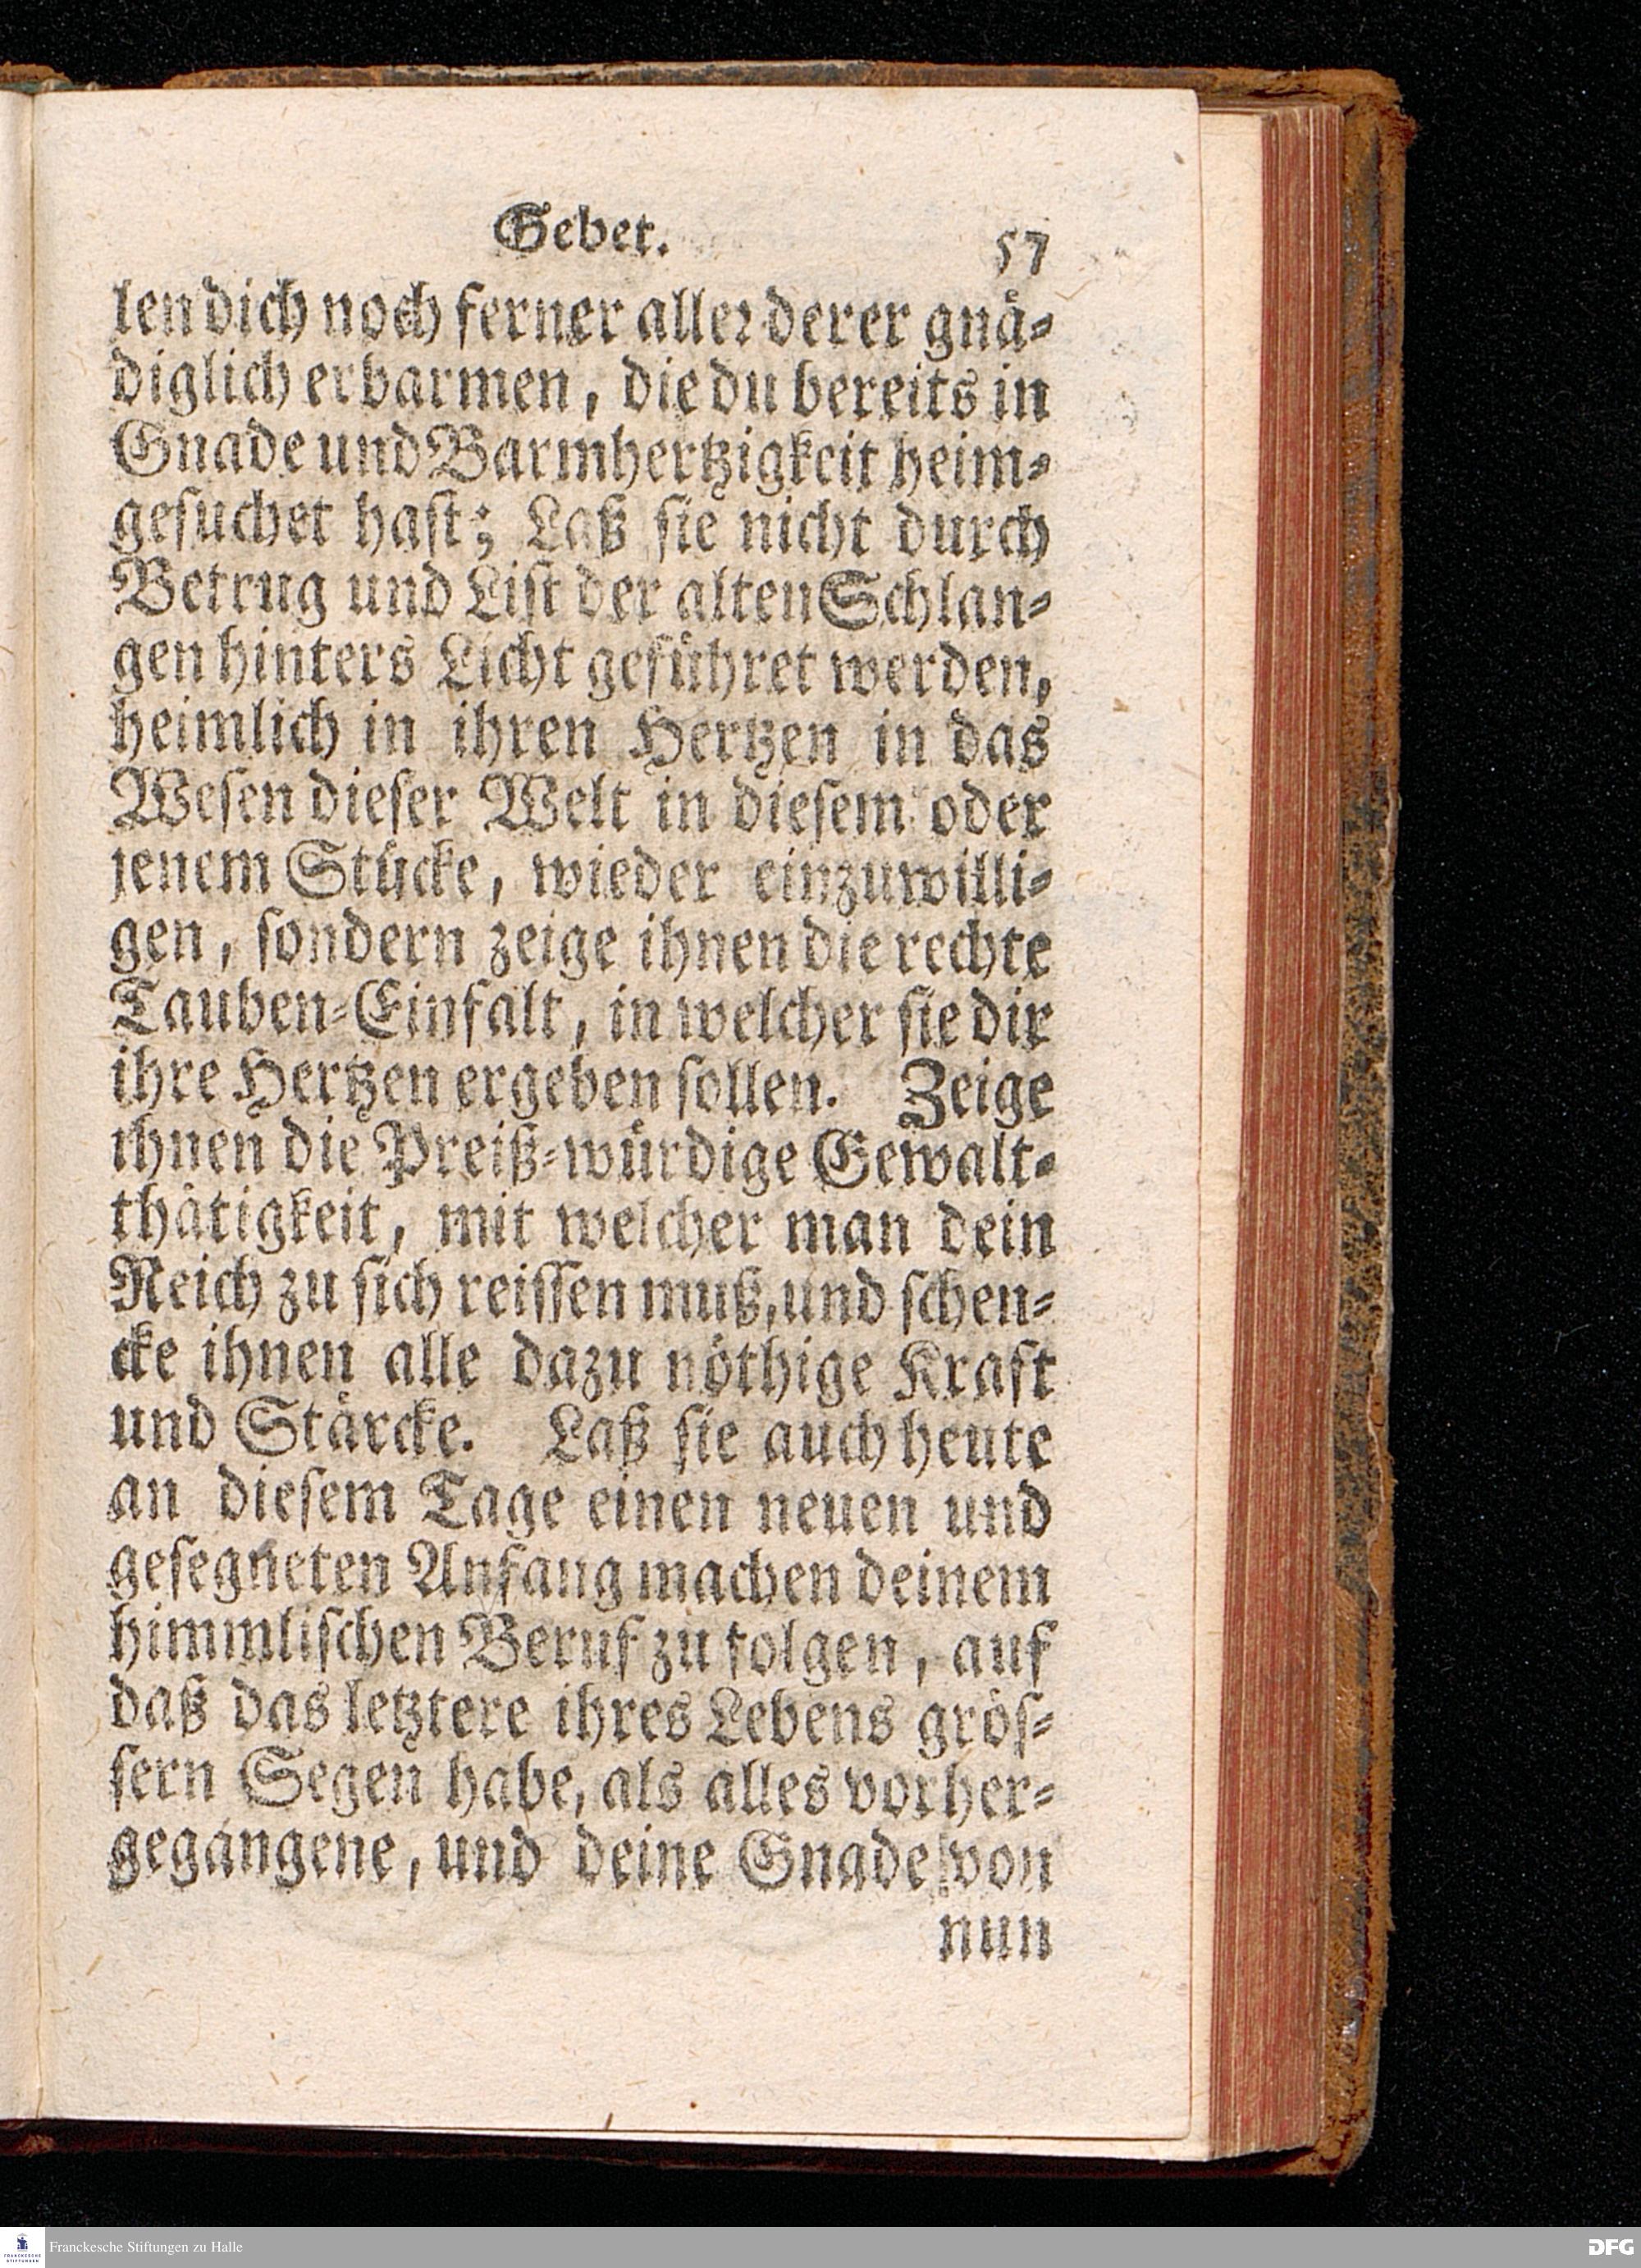 Gebet. 57
len dich noch ferner aller derer gnä⸗
diglich erbarmen, die du bereits in
Gnade und Barmhertzigkeit heim⸗
gesuchet hast; Laß sie nicht durch
Betrug und List der alten Schlan⸗
gen hinters Licht geführet werden,
heimlich in ihren Hertzen in das
Wesen dieser Welt in diesem oder
jenem Stücke, wieder einzuwilli⸗
gen, sondern zeige ihnen die rechte
Tauben⸗Einfalt, in welcher sie dir
ihre Hertzen ergeben sollen. Zeige
ihnen die Preiß⸗würdige Gewalt⸗
thätigkeit, mit welcher man dein
Reich zu sich reissen muß, und schen⸗
cke ihnen alle dazu nöthige Kraft
und Stärcke. Laß sie auch heute
an diesem Tage einen neuen und
gesegneten Anfang machen deinem
himmlischen Beruf zu folgen, auf
daß das letztere ihres Lebens grös⸗
sern Segen habe, als alles vorher⸗
gegangene, und deine Gnade von
nun
FRANCKESCHE STIFTUNGEN
Franckesche Stiftungen zu Halle
DFG